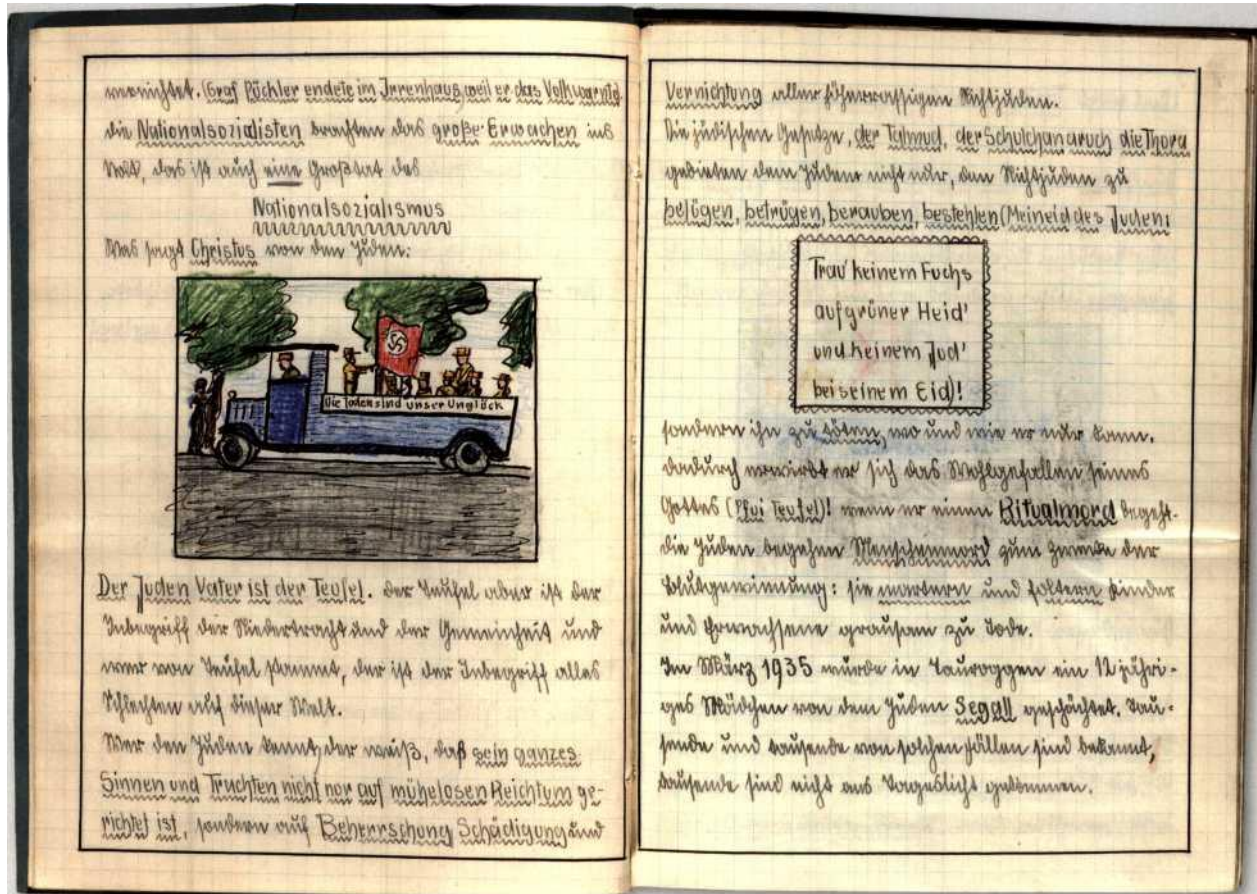 vernichtet. (Graf Pückler endete im Irrenhaus, weil er das Volk warnte).
Die Nationalsozialisten brachten das große Erwachen ins
Volk, das ist auch eine Großtat des
Nationalsozialismus
Was sagt Christus von den Juden:
Die Juden sind unser Unglück
Der Juden Vater ist der Teufel. Der Teufel aber ist der
Inbegriff der Niedertracht und der Gemeinheit und
wer von Teufel stammt, der ist der Inbegriff alles
Schlechten auf dieser Welt.
Wer den Juden kennt, der weiß, daß sein ganzes
Sinnen und Trachten nicht nur auf mühelosen Reichtum ge-
richtet ist, sondern auf Beherrschung Schädigung und
Vernichtung aller höherrassigen Nichtjuden.
Die jüdischen Gesetze, der Talmud, der Schulchan aruch die Thora
gebieten dem Juden nicht nur, den Nichtjuden zu
belügen, betrügen, berauben, bestehlen (Meineid des Juden:
Trau' keinem Fuchs
auf grüner Heid'
und keinem Jud'
bei seinem Eid)!
sondern ihn zu töten, wo und wie er nur kann.
Dadurch erwirbt er sich das Wohlgefallen seines
Gottes (Pfui Teufel)! wenn er einen Ritualmord begeht.
Die Juden begehen Menschenmord zum Zwecke der
Blutgewinnung: sie martern und foltern Kinder
und Erwachsene grausam zu Tode.
Im März 1935 wurde in Tauroggen ein 12 jähri-
ges Mädchen von dem Juden Segall geschächtet. Tau-
sende und tausende von solchen Fällen sind bekannt,
tausende sind nicht ans Tageslicht gekommen.